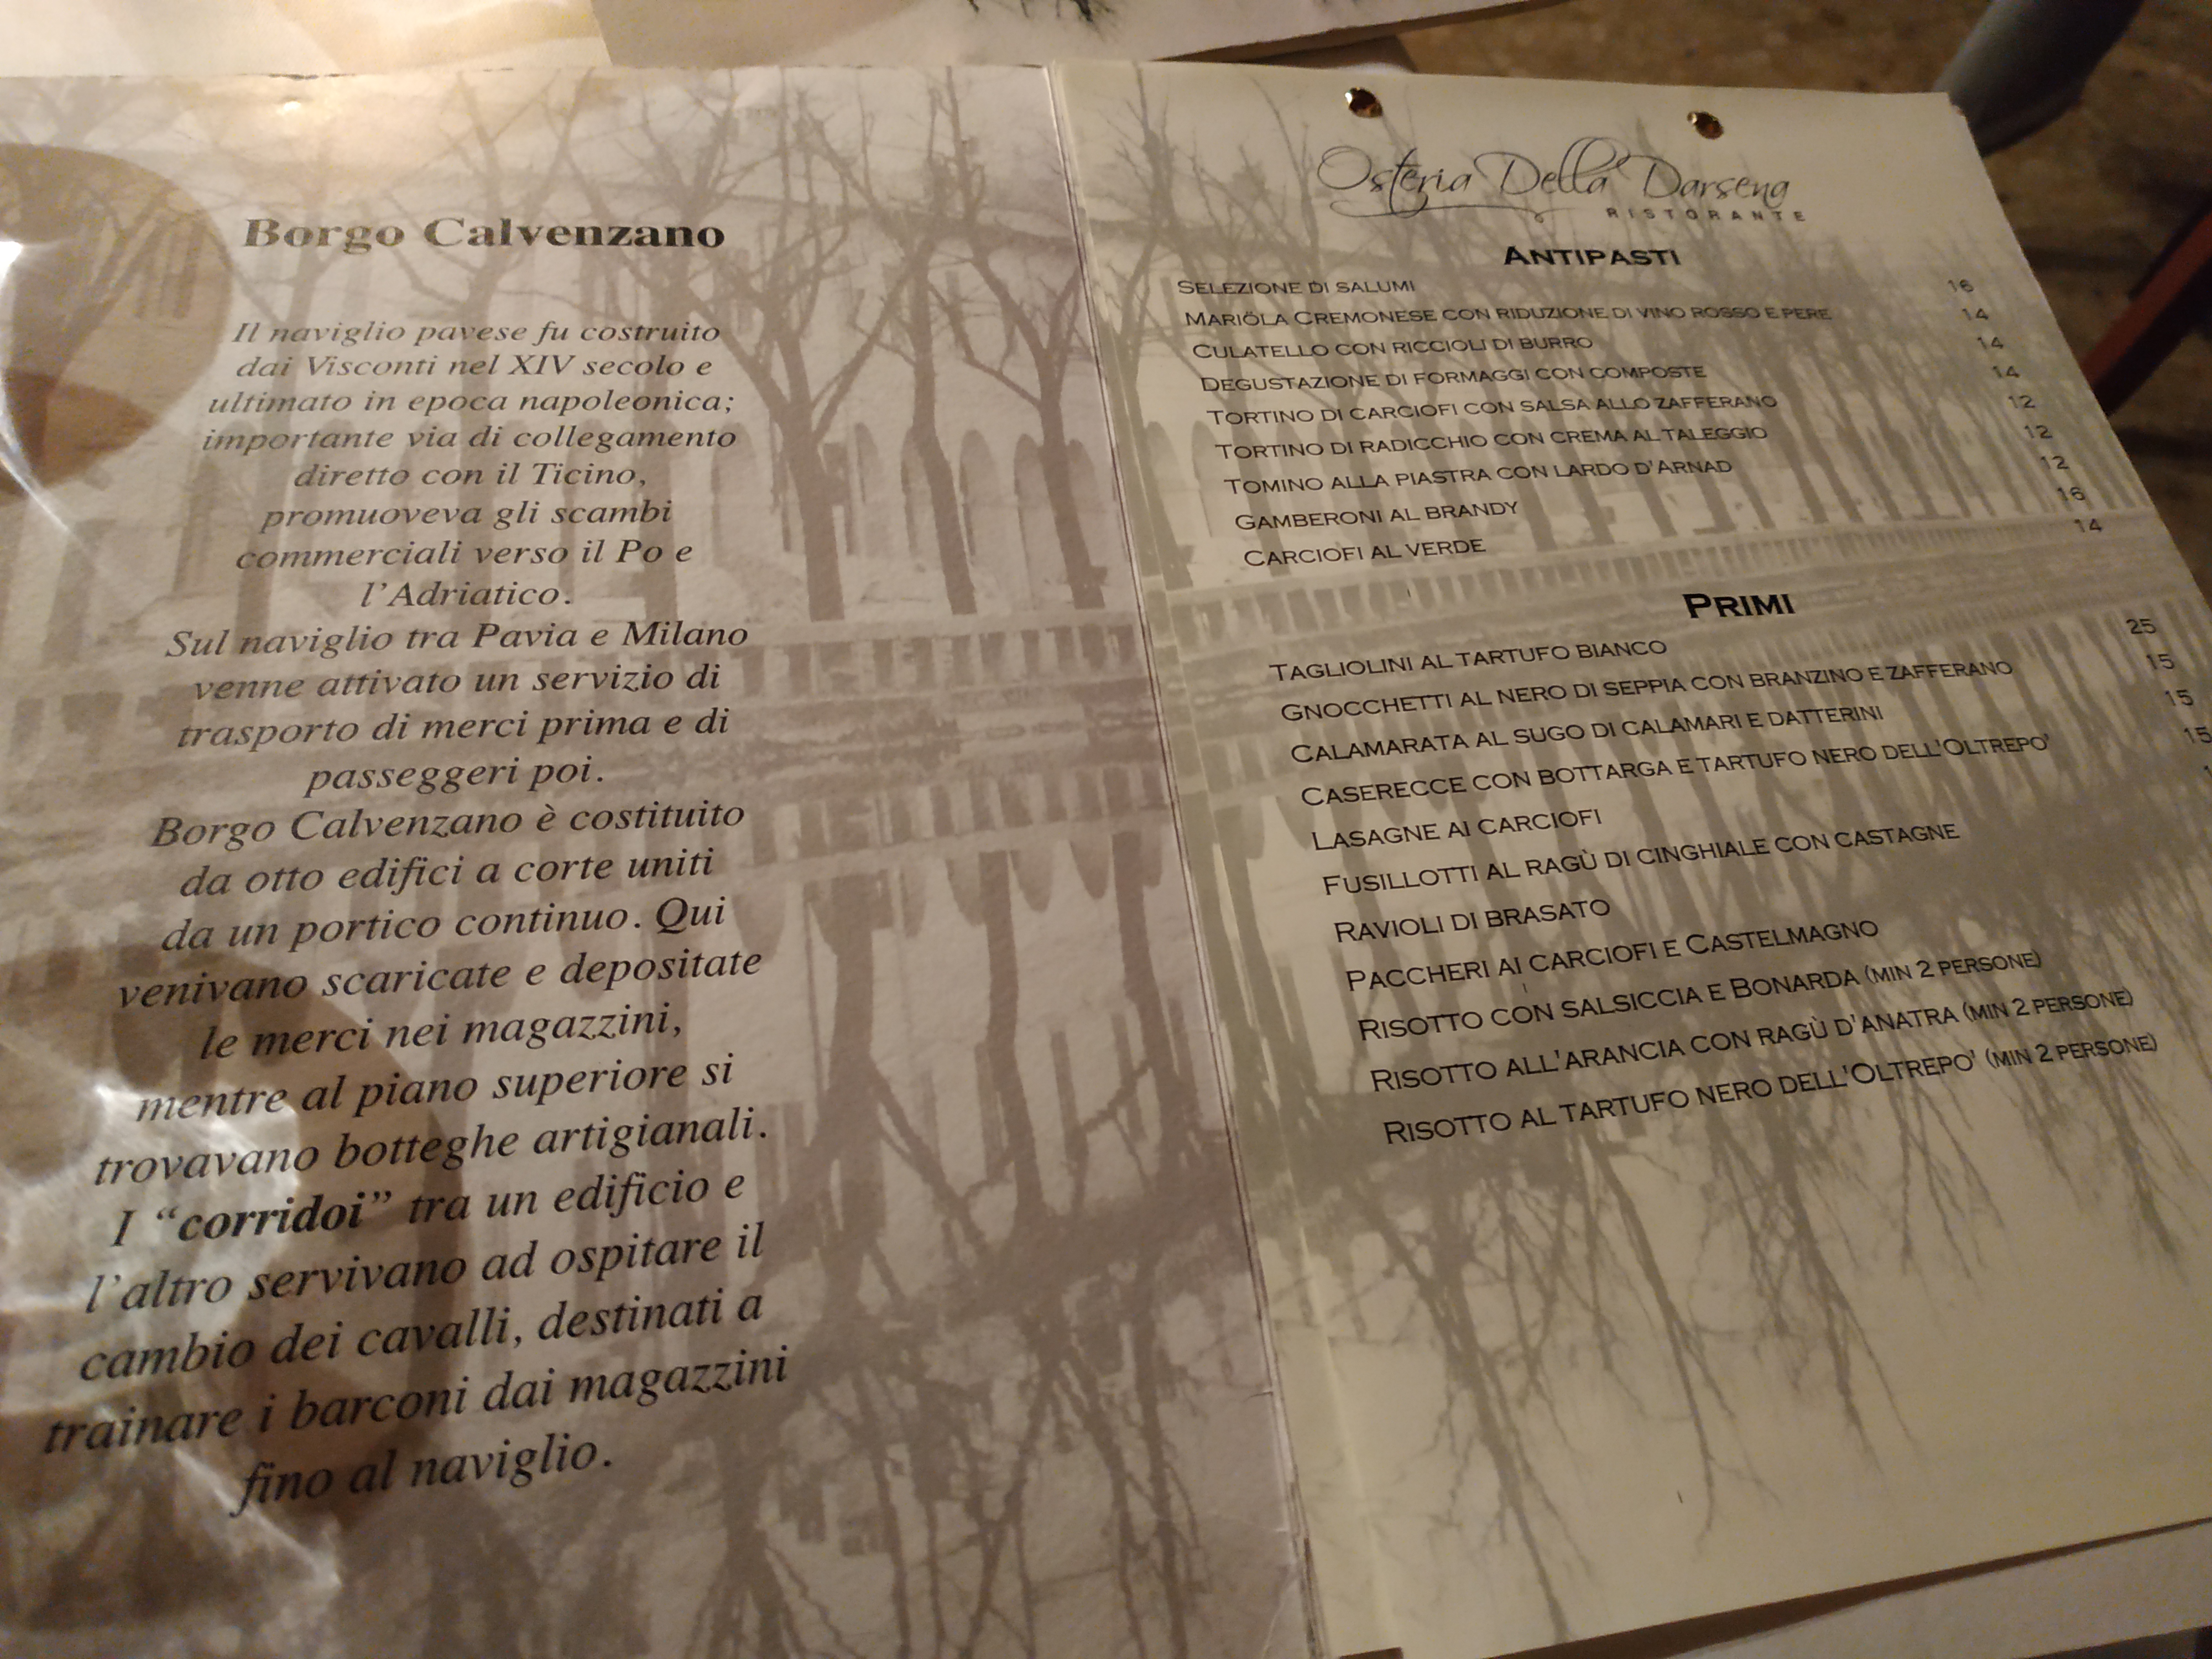 Borgo Calvenzano
Il naviglio pavese fu costruito
dai Visconti nel XIV secolo e
ultimato in epoca napoleonica;
importante via di collegamento
diretto con il Ticino,
promuoveva gli scambi
commerciali verso il Po e
l'Adriatico.
Sul naviglio tra Pavia e Milano
venne attivato un servizio di
trasporto di merci prima e di
passeggeri poi.
Borgo Calvenzano è costituito
da otto edifici a corte uniti
da un portico continuo. Qui
venivano scaricate e depositate
le merci nei magazzini,
mentre al piano superiore si
trovavano botteghe artigianali.
I “corridoi” tra un edificio e
l'altro servivano ad ospitare il
cambio dei cavalli, destinati a
trainare i barconi dai magazzini
fino al naviglio.
Osteria Della Darsena
RISTORANTE
ANTIPASTI
SELEZIONE DI SALUMI 16
MARIÖLA CREMONESE CON RIDUZIONE DI VINO ROSSO E PERE 14
CULATELLO CON RICCIOLI DI BURRO 14
DEGUSTAZIONE DI FORMAGGI CON COMPOSTE 14
TORTINO DI CARCIOFI CON SALSA ALLO ZAFFERANO 12
TORTINO DI RADICCHIO CON CREMA AL TALEGGIO 12
TOMINO ALLA PIASTRA CON LARDO D'ARNAD 12
GAMBERONI AL BRANDY 16
CARCIOFI AL VERDE 14
PRIMI
TAGLIOLINI AL TARTUFO BIANCO 25
GNOCCHETTI AL NERO DI SEPPIA CON BRANZINO E ZAFFERANO 15
CALAMARATA AL SUGO DI CALAMARI E DATTERINI 15
CASERECCE CON BOTTARGA E TARTUFO NERO DELL'OLTREPO' 15
LASAGNE AI CARCIOFI
FUSILLOTTI AL RAGÙ DI CINGHIALE CON CASTAGNE
RAVIOLI DI BRASATO
PACCHERI AI CARCIOFI E CASTELMAGNO
RISOTTO CON SALSICCIA E BONARDA (MIN 2 PERSONE)
RISOTTO ALL'ARANCIA CON RAGÙ D'ANATRA (MIN 2 PERSONE)
RISOTTO AL TARTUFO NERO DELL'OLTREPO' (MIN 2 PERSONE)